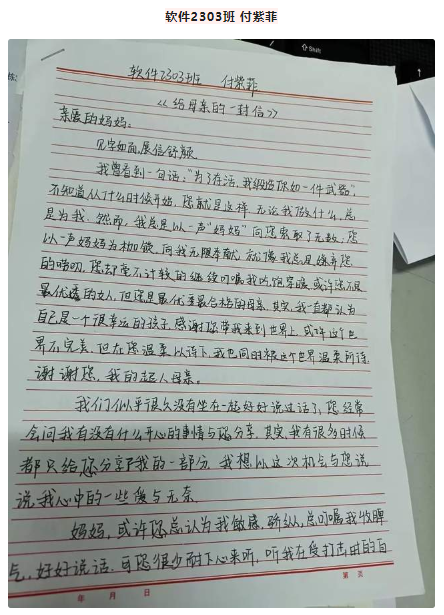 软件2303班 付紫菲
软件2303班 付紫菲
《给母亲的一封信》
亲爱的妈妈:
见字如面,展信舒颜
我曾看到一句话:“为了存活,我
不知道从什么时候开始,您就是这样,无论我做什么,总
是为我,然而,我总是以一声“妈妈”向您索取了无数,您
以一声妈妈为枷锁,向我无限奉献,就像我总是嫌弃您
的唠叨,您却毫不计较的继续叮嘱我吃饱穿暖,或许您不是
最优秀的女人,但您是最优秀最合格的母亲,其实,我一直都认为
自己是一个很幸运的孩子,感谢您带我来到世界上,或许这个世
界不完美,但在您温柔以待下,我也同时被这个世界温柔所待
谢谢您,我的超人母亲。
我们似乎很久没有坐在一起好好说过话了,您经常
会问我有没有什么开心的事情与您分享,其实,我有很多时候
都只给您分享了我的一部分,我想以这次机会与您说
说,我心中的一些 与无奈
妈妈,或许您总认为我敏感,骄纵,总叮嘱我收脾
气,好好说话,可您很少耐下心来听,听我在受打击时的自
年 月 日
第 页
Shift